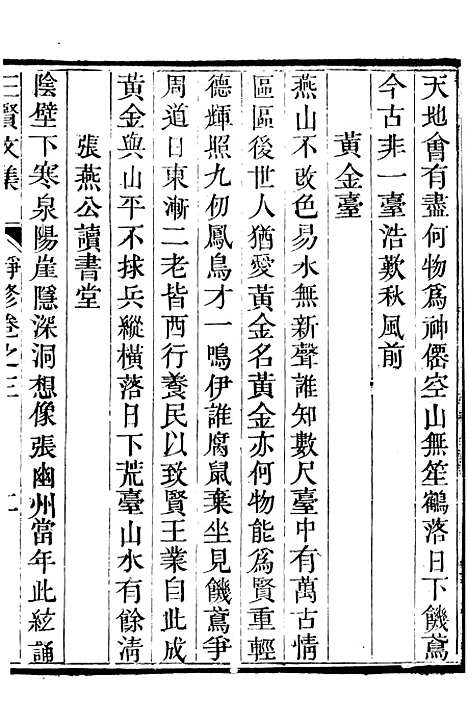 天地會有盡何物爲神僊空山無笙鶴落日下饑鳶
今古非一臺浩歎秋風前
黃金臺
燕山不改色易水無新聲誰知數尺臺中有萬古情
區區後世人猶愛黃金名黃金亦何物能爲賢重輕
德輝照九仞鳳鳥才一鳴伊誰腐鼠棄坐見饑鳶爭
周道日東漸二老皆西行養民以致賢王業自此成
黃金與山平不捄兵縱橫落日下荒臺山水有餘清
張燕公讀書堂
陰壁下寒泉陽崖隱深洞想像張幽州當年此絃誦
三賢文集
靜修卷之三
二